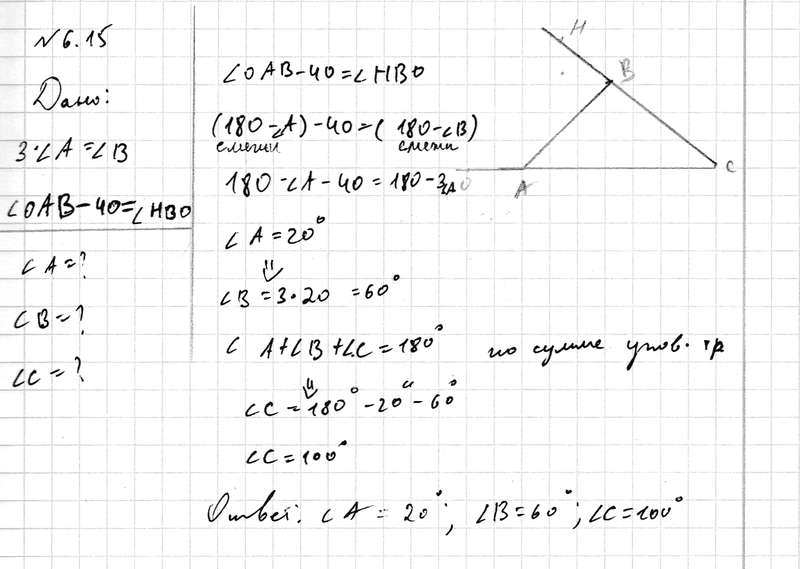 N 6.15
Дано:
3·∠A=∠B
∠OAB-40=∠HBO
∠A=?
∠B=?
∠C=?
∠OAB-40=∠HBO
(180-∠A)-40=(180-∠B)
смежн смежн
180-∠A-40=180-3∠A
∠A=20°
⇓
∠B=3·20=60°
∠A+∠B+∠C=180° по сумме углов. тр
⇓
∠C=180°-20°-60°
∠C=100°
Ответ: ∠A=20°; ∠B=60°; ∠C=100°
H
B
O
A
C